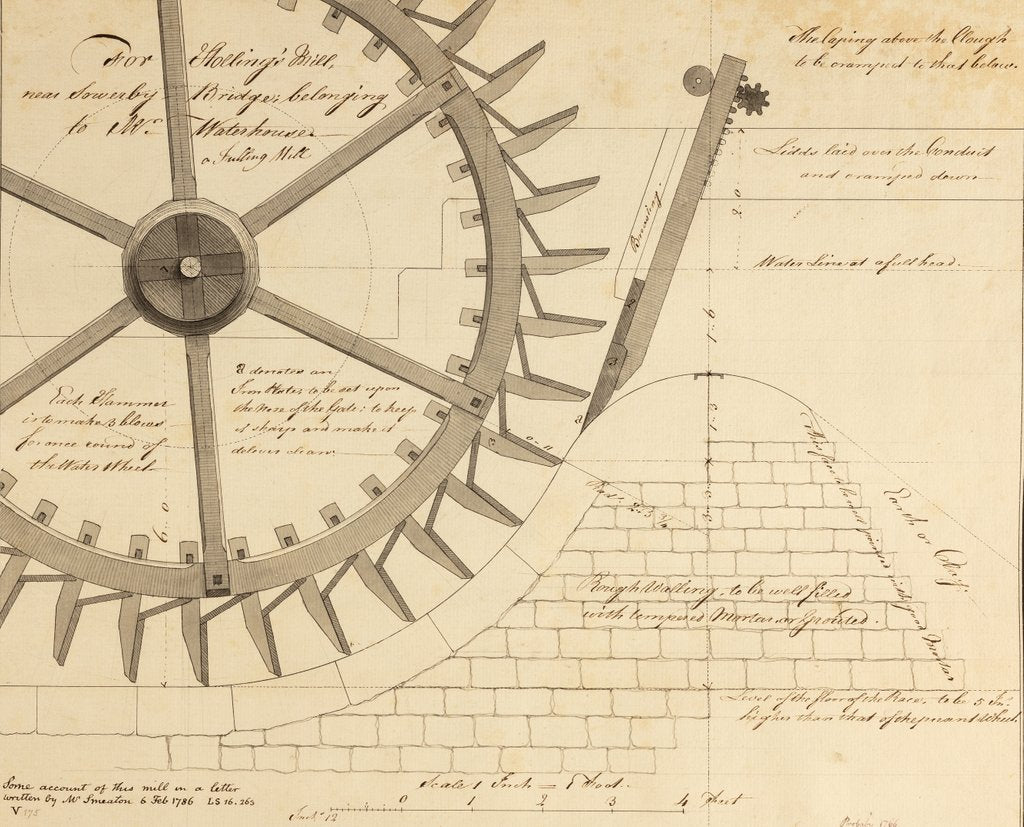 For Holling's Mill,
near Sowerby Bridge, belonging
to Mr. Waterhouse.
a Fulling Mill
The Coping above the Clough
to be cramped to that below.
Lidds laid over the Conduit
and cramped down
Breasting.
2.0
Water Line at a full head.
1.6
A
Each Hammer
is to make 3 blows
for once round of
the Water Wheel
a denotes an
Iron Plate, to be set upon
the nose of the Gate; to keep
it sharp and make it
deliver clean.
a
6.0
Rads. 2.3 1/2
Earth or Clay.
Rough Walling, to be well filled
with tempered Mortar, or Grouted.
Level of the floor of the Race, to be 5 In:
higher than that of the present Wheel.
Some account of this mill in a letter
written by Mr Smeaton 6 Feb 1786 LS 16.263
V 175
Scale 1 Inch = 1 Foot.
Inchs 12 0 1 2 3 4 Feet